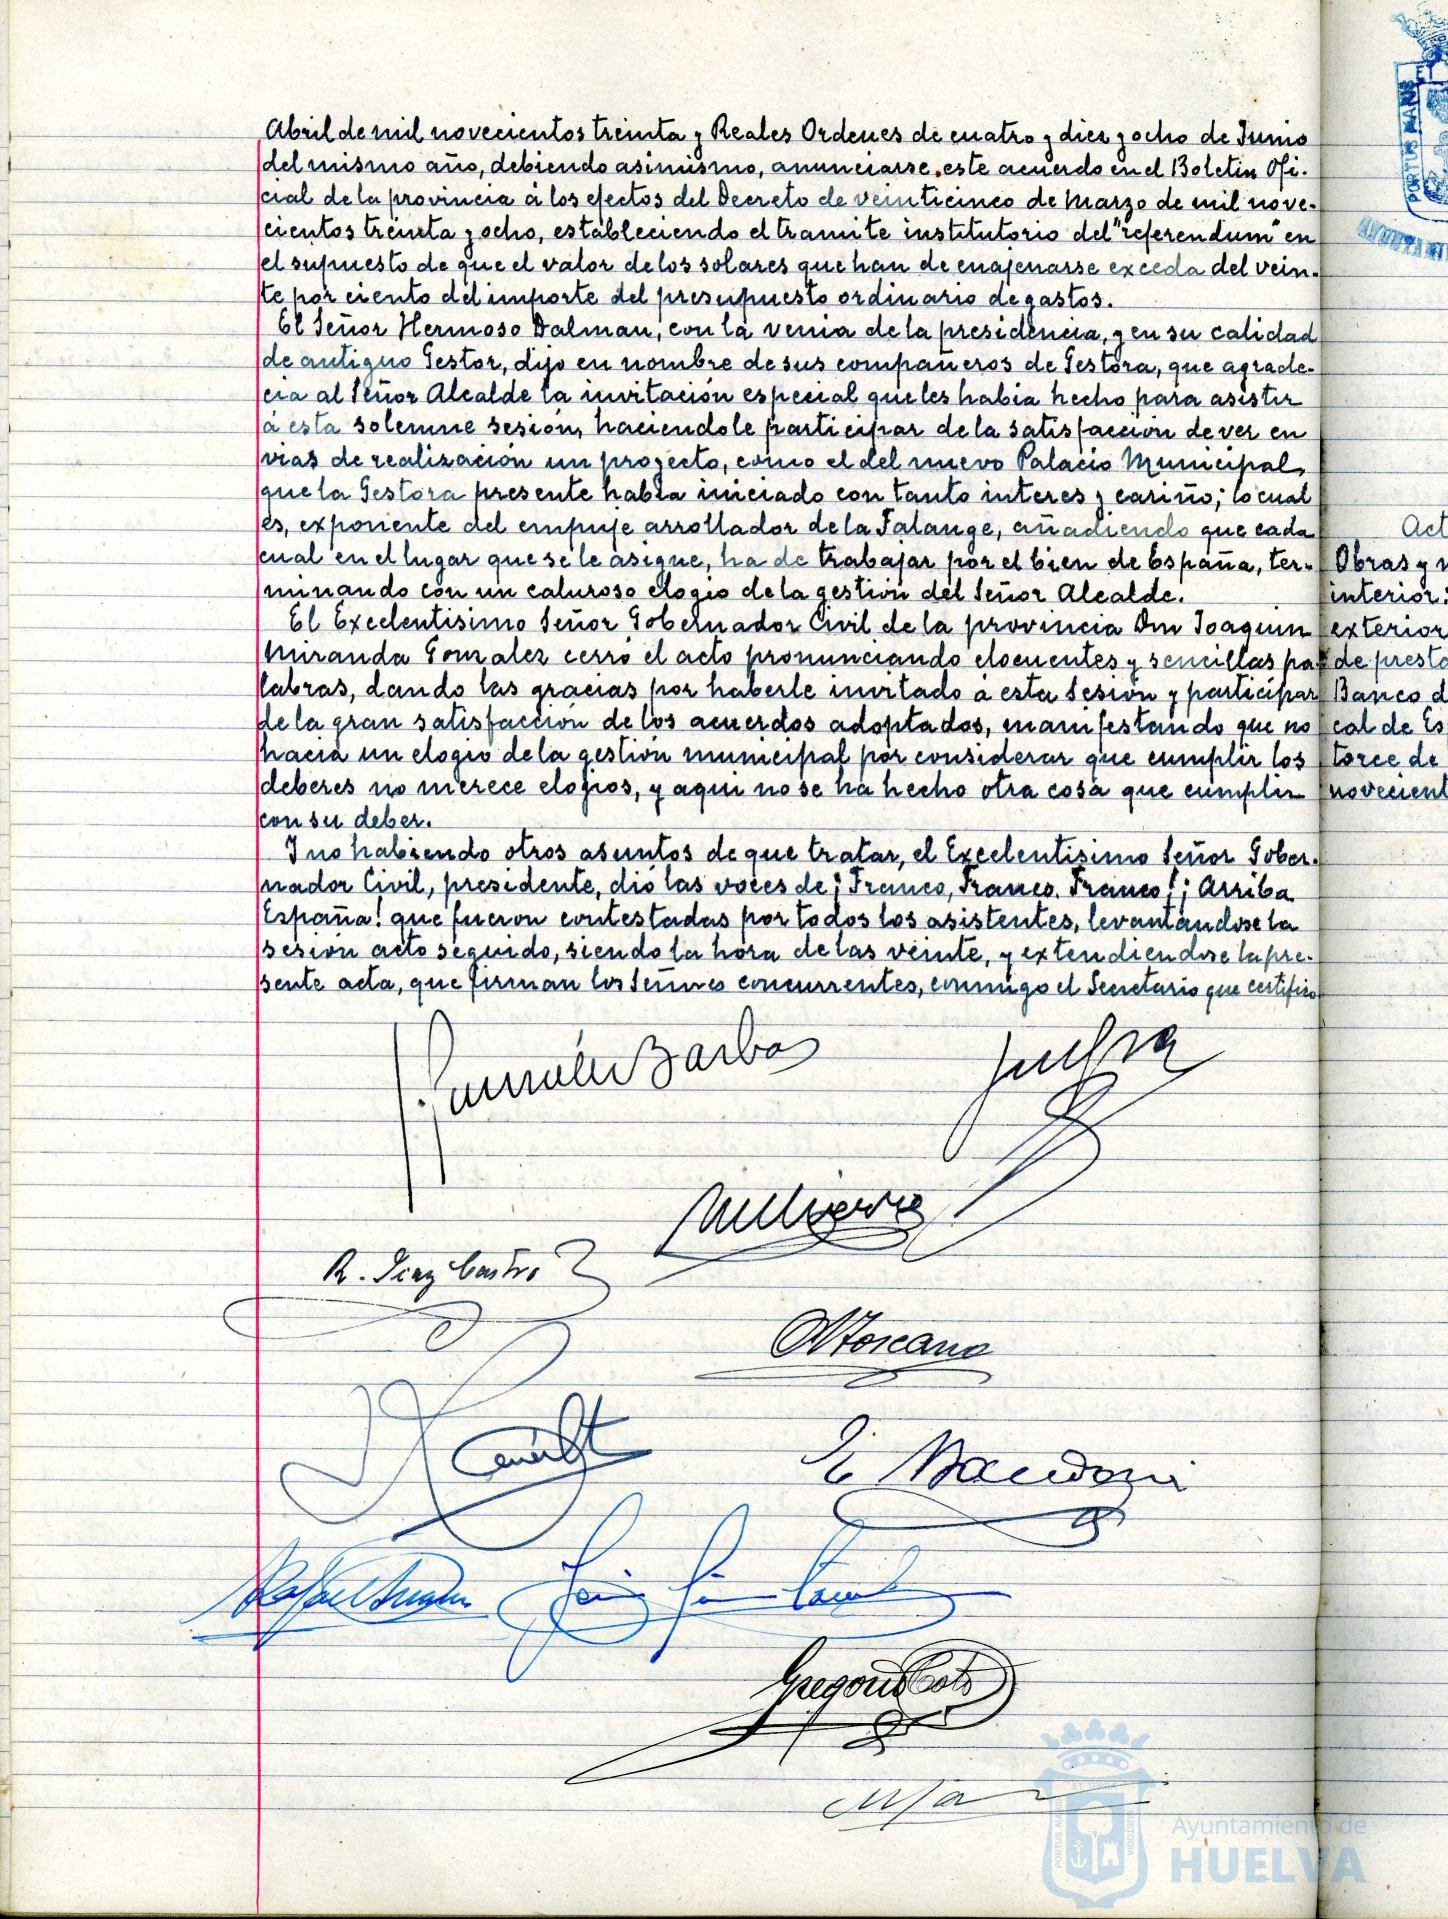 Abril de mil novecientos treinta y Reales Ordenes de cuatro y diez y ocho de Junio
del mismo año, debiendo asimismo, anunciarse este acuerdo en el Boletin Ofi-
cial de la provincia á los efectos del Decreto de veinticinco de Marzo de mil nove-
cientos treinta y ocho, estableciendo el tramite institutorio del "referendum" en
el supuesto de que el valor de los solares que han de enajenarse exceda del vein-
te por ciento del importe del presupuesto ordinario de gastos.
El Señor Hermoso Dalman, con la venia de la presidencia, y en su calidad
de antiguo Gestor, dijo en nombre de sus compañeros de Gestora, que agrade-
cia al Señor Alcalde la invitación especial que les habia hecho para asistir
á esta solemne sesión, haciendole participar de la satisfacción de ver en
vias de realización un proyecto, como el del nuevo Palacio Municipal,
que la Gestora presente habia iniciado con tanto interes y cariño; lo cual
es, exponente del empuje arrollador de la Falange, añadiendo que cada
cual en el lugar que se le asigne, ha de trabajar por el bien de España, ter-
minando con un caluroso elogio de la gestión del Señor Alcalde.
El Excelentisimo Señor Gobernador Civil de la provincia Don Joaquin
Miranda Gonzalez cerró el acto pronunciando elocuentes y sencillas pa-
labras, dando las gracias por haberle invitado á esta Sesión y participar
de la gran satisfacción de los acuerdos adoptados, manifestando que no
hacia un elogio de la gestión municipal por considerar que cumplir los
deberes no merece elogios, y aqui no se ha hecho otra cosa que cumplir
con su deber.
Y no habiendo otros asuntos de que tratar, el Excelentisimo Señor Gober-
nador Civil, presidente, dió las voces de ¡Franco, Franco, Franco! ¡Arriba
España! que fueron contestadas por todos los asistentes, levantandose la
sesión acto seguido, siendo la hora de las veinte, y extendiendose la pre-
sente acta, que firman los Señores concurrentes, conmigo el Secretario que certifico
Barba
R. Diaz Castro
Toscano
E. Mandoni
Rafael
Gregorio Coto
Act
Obras y
interior:
exterior
de presta
Banco d
cal de Es
torce de
novecient
PORTUS MARIS ET
Ayuntamiento de
HUELVA